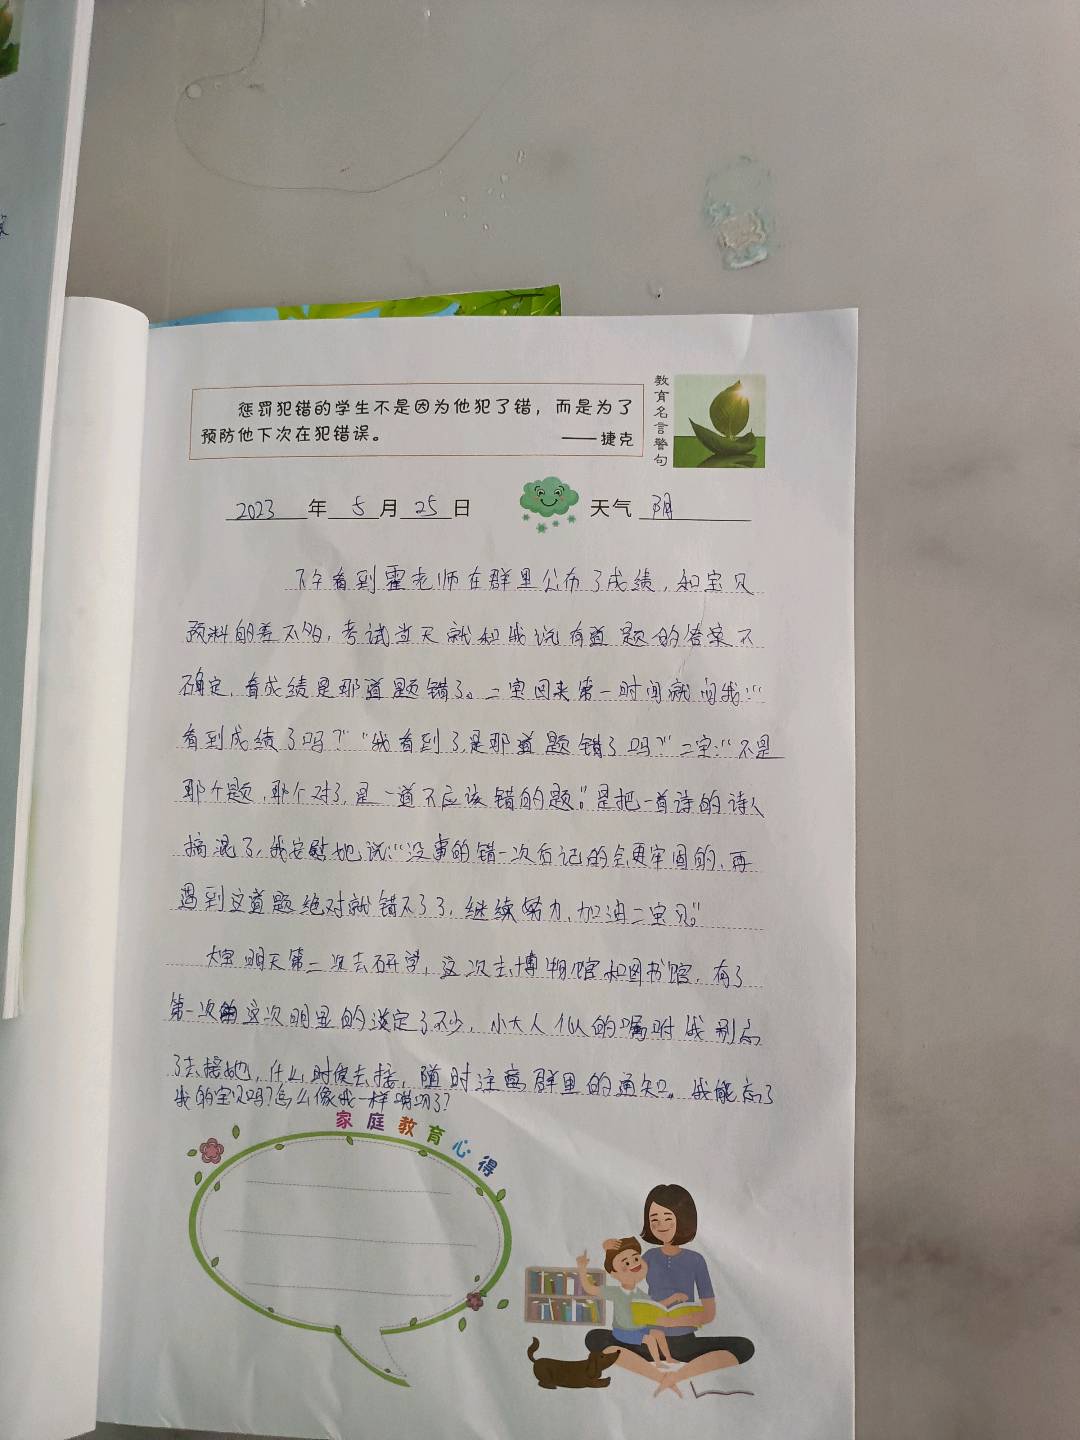 惩罚犯错的学生不是因为他犯了错，而是为了
预防他下次在犯错误。
——捷克
教育名言警句
2023年5月25日 天气 阴
下午看到霍老师在群里公布了成绩，和宝贝
预料的差不多，考试当天就和我说有道题的答案不
确定，看成绩是那道题错了。二宝回来第一时间就问我：“
看到成绩了吗？”“我看到了，是那道题错了吗？”二宝：“不是
那个题，那个对了，是一道不应该错的题。”是把一首诗的诗人
搞混了，我安慰她说：“没事的错一次后记的会更牢固的，再
遇到这道题绝对就错不了了，继续努力，加油二宝贝。”
大宝明天第二次去研学，这次去博物馆和图书馆，有了
第一次的这次明显的淡定了不少，小大人似的嘱咐我别忘
了去接她，什么时候去接，随时注意群里的通知。我能忘了
我的宝贝吗？怎么像我一样唠叨了？
家庭教育心得